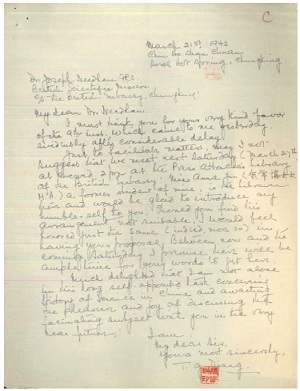 C
March 21st, 1943
Hot Spring, Chungking
Dr. Joseph Needham
British Scientific Mission
c/o the British Embassy, Chungking
My dear Dr. Needham:
I must thank you for your very kind favor
of the inst. which came to me yesterday
evidently after considerable delay.
Just to facilitate matters, may I not
suggest that we meet next Saturday (March 27th
at 2 p.m. at the Press Attaché's Library
of the British Embassy. Miss
a former student of mine, is the librarian
here and would be glad to introduce my
humble self to you. Should you find this
arrangement not suitable, I would feel
honored just the same in
having your proposal. Between now and the
coming Saturday I presume there will be
ample time for your words to get here.
Much delighted that I am not alone
in this long self-appointed task concerning
history of science in China and awaiting
the pleasure and joy of discussing this
fascinating subject with you in the very
near future,
I am,
My dear Sir,
Yours most sincerely,